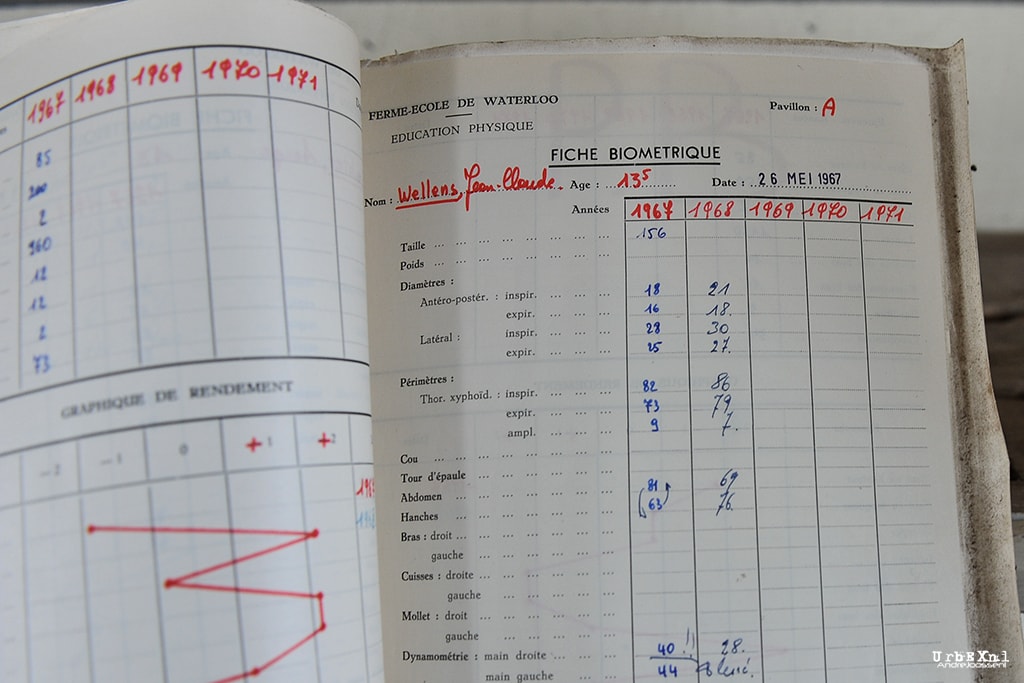 1967 1968 1969 1970 1971
85
200
2
260
12
12
2
73
GRAPHIQUE DE RENDEMENT
— 2 — 1 0 + 1 + 2
FERME-ECOLE DE WATERLOO
Pavillon : A
EDUCATION PHYSIQUE
FICHE BIOMETRIQUE
Nom : Wellens, Jean-Claude. Age : 13⁵ Date : 26 MEI 1967
Années 1967 1968 1969 1970 1971
Taille ... ... ... ... ... ... ... ... 156
Poids ... ... ... ... ... ... ... ...
Diamètres :
Antéro-postér. : inspir. ... ... ... 18 21
expir. ... ... ... 16 18.
Latéral : inspir. ... ... ... 28 30
expir. ... ... ... 25 27.
Périmètres :
Thor. xyphoïd. : inspir. ... ... ... 82 86
expir. ... ... ... 73 79
ampl. ... ... ... 9 7.
Cou ... ... ... ... ... ... ... ...
Tour d'épaule ... ... ... ... ... ...
Abdomen ... ... ... ... ... ... ... 81 69
Hanches ... ... ... ... ... ... ... 63 76.
Bras : droit ... ... ... ... ... ... ...
gauche ... ... ... ... ... ...
Cuisses : droite ... ... ... ... ... ...
gauche ... ... ... ... ...
Mollet : droit ... ... ... ... ... ...
gauche ... ... ... ... ... ...
Dynamométrie : main droite ... ... ... 40 !! 28.
main gauche ... ... ... 44 blessé.
UrbEXnl
AndreJoosseni